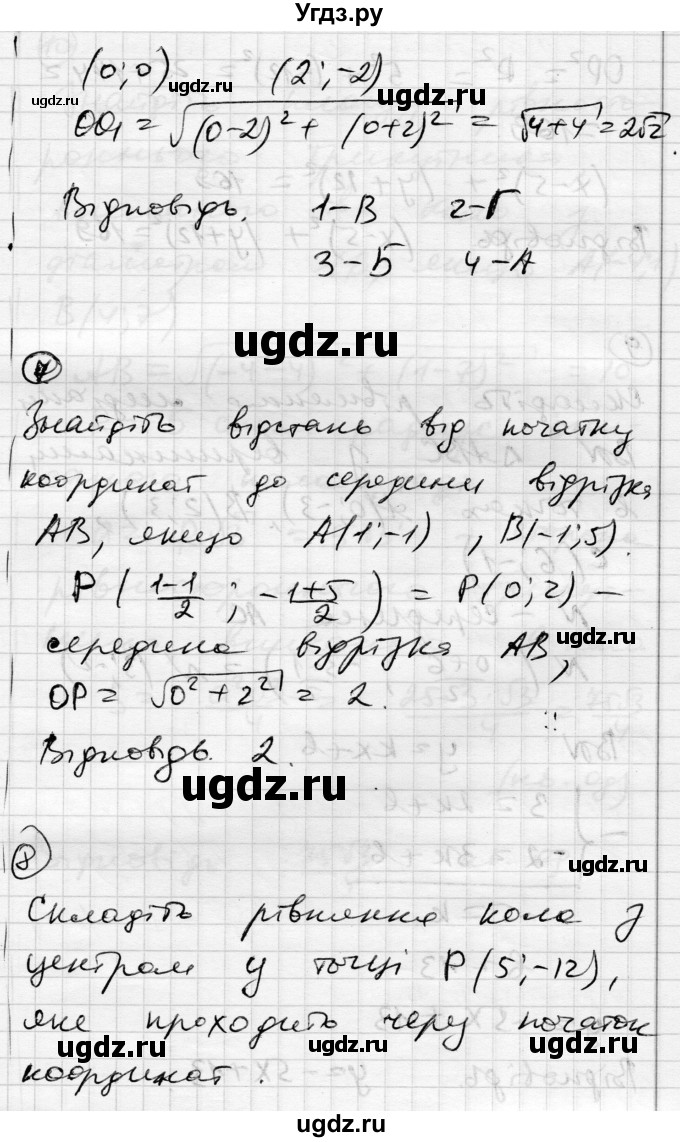 Угдз.ру
(0; 0) (2; -2)
OO₁ = √(0-2)² + (0+2)² = √4+4 = 2√2.
Відповідь. 1-В 2-Г
3-Б 4-А
7
Знайдіть відстань від початку
координат до середини відрізка
AB, якщо A(1;-1), B(-1;5).
P(\frac{1-1}{2}; \frac{-1+5}{2}) = P(0;2) –
середина відрізка AB,
OP = √0² + 2² = 2.
Відповідь. 2.
8
Складіть рівняння кола з
центром у точці P(5;-12),
яке проходить через початок
координат.
ugdz.ru
ugdz.ru
ugdz.ru
ugdz.ru
ugdz.ru
ugdz.ru
ugdz.ru
ugdz.ru
ugdz.ru
ugdz.ru
ugdz.ru
ugdz.ru